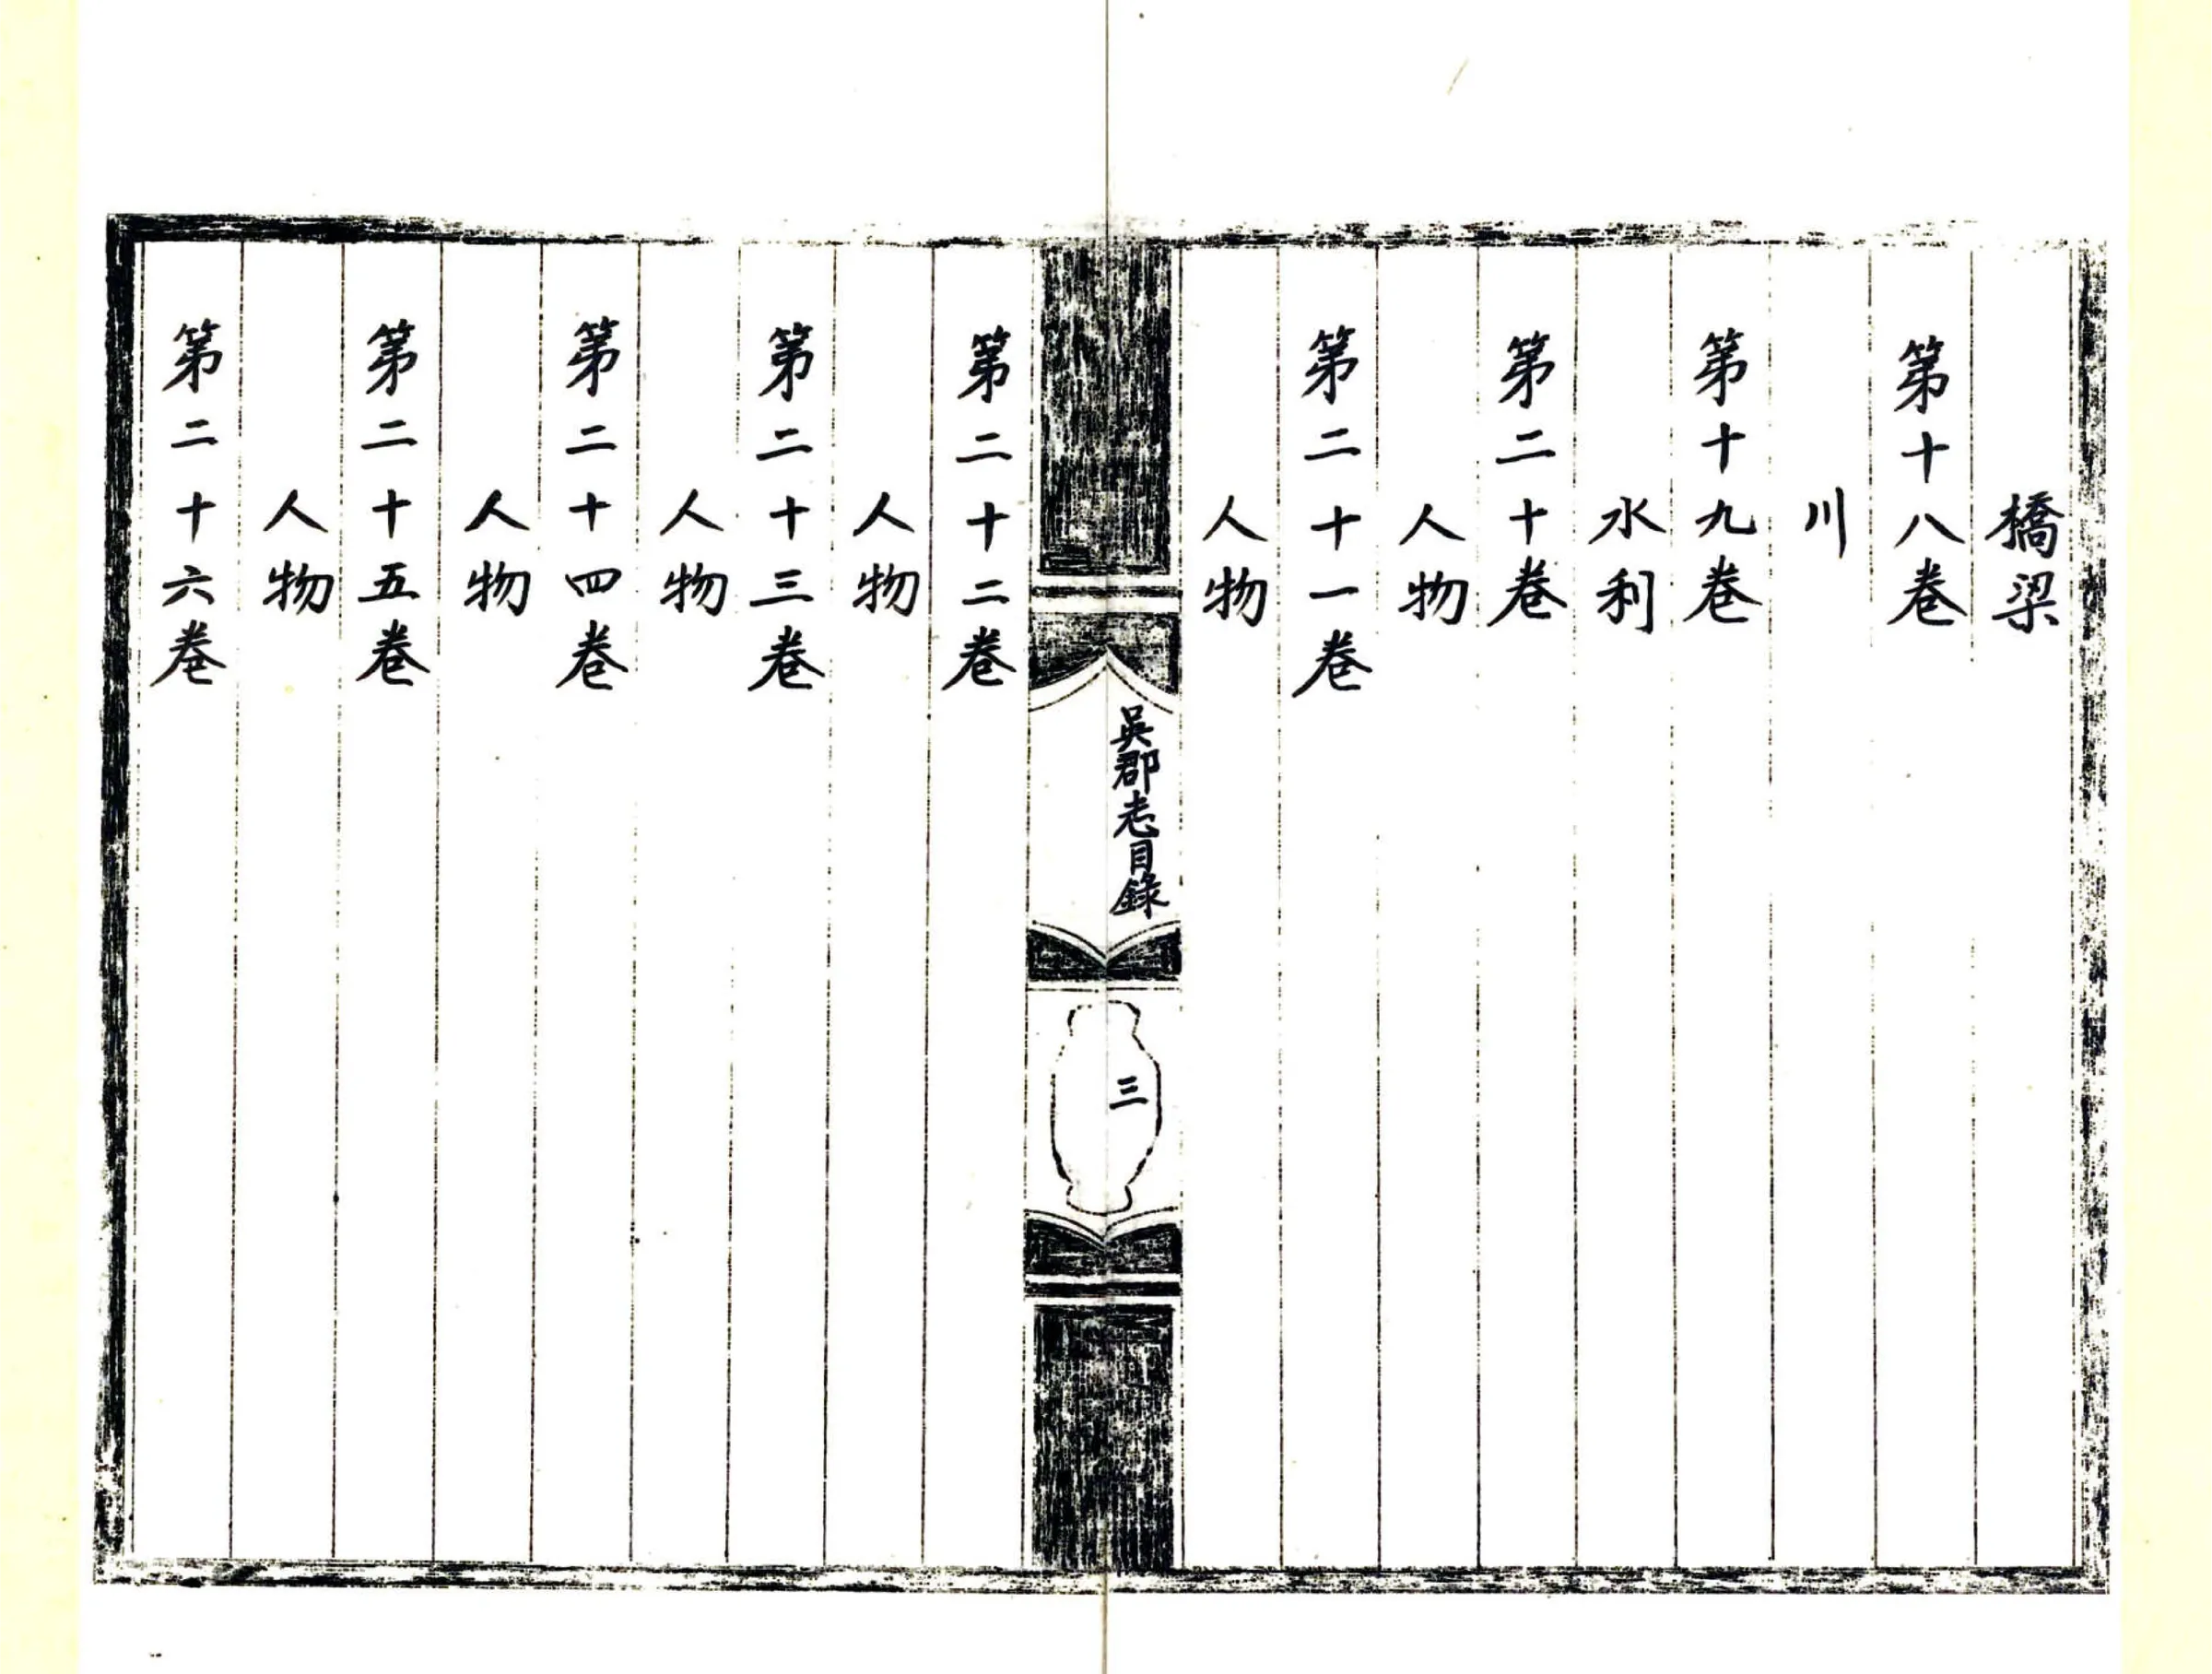 橋梁
第十八巻
川
第十九巻
水利
第二十巻
人物
第二十一巻
人物
吳郡志目錄
三
第二十二巻
人物
第二十三巻
人物
第二十四巻
人物
第二十五巻
人物
第二十六巻